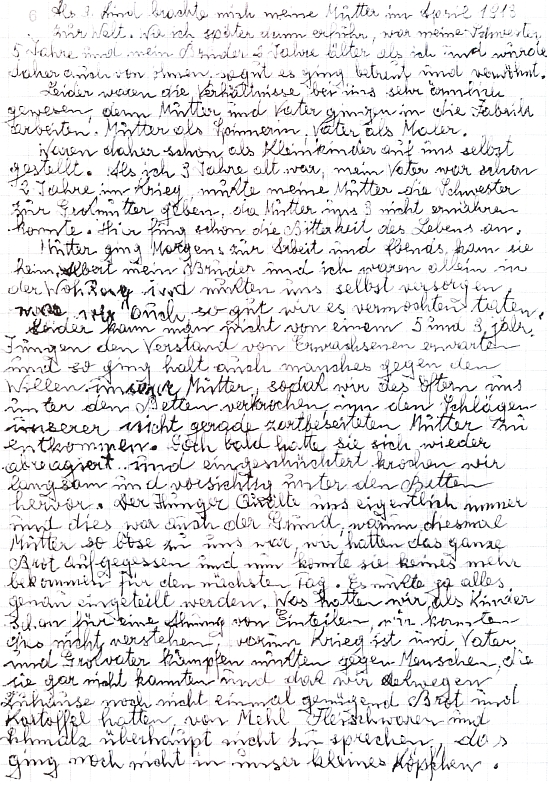 Als 3. Kind brachte mich meine Mutter im April 1913
zur Welt. Wie ich später dann erfuhr, war meine Schwester
5 Jahre und mein Bruder 2 Jahre älter als ich und wurde
daher auch von ihnen, so gut es ging betreut und verwöhnt.
Leider waren die Verhältnisse bei uns sehr ärmlich
gewesen, denn Mutter und Vater gingen in die Fabrik
arbeiten. Mutter als Spinnerin, Vater als Maler.
Waren daher schon als Kleinkinder auf uns selbst
gestellt. Als ich 3 Jahre alt war, mein Vater war schon
2 Jahre im Krieg, mußte meine Mutter die Schwester
zur Großmutter geben, da Mutter uns 3 nicht ernähren
konnte. Hier fing schon die Bitterkeit des Lebens an.
Mutter ging Morgens zur Arbeit und Abends kam sie
heim. Albert mein Bruder und ich waren allein in
der Wohnung und mußten uns selbst versorgen
wir auch so gut wir es vermochten taten.
Leider kann man nicht von einem 5 und 3 jähr.
Jungen den Verstand von Erwachsenen erwarten
und so ging halt auch manches gegen den
Willen unserer Mutter, sodaß wir des öftern uns
unter den Betten verkrochen, um den Schlägen
unserer nicht gerade zartbesaiteten Mutter zu
entkommen. Doch bald hatte sie sich wieder
abreagiert und eingeschüchtert krochen wir
langsam und vorsichtig unter den Betten
hervor. Der Hunger quälte uns eigentlich immer
und dies war auch der Grund, warum diesmal
Mutter so böse zu uns war, wir hatten das ganze
Brot aufgegessen und nun konnte sie keines mehr
bekommen für den nächsten Tag. Es mußte ja alles
genau eingeteilt werden. Was hatten wir als Kinder
für eine Ahnung von Einteilen, wir konnten
das nicht verstehen, warum Krieg ist und Vater
und Großvater kämpfen mußten gegen Menschen, die
sie gar nicht kannten und daß wir deswegen
Zuhause noch nicht einmal genügend Brot und
Kartoffel hatten, von Mehl Fleischwaren und
Schmalz überhaupt nicht zu sprechen, das
ging noch nicht in unser kleines Köpfchen.